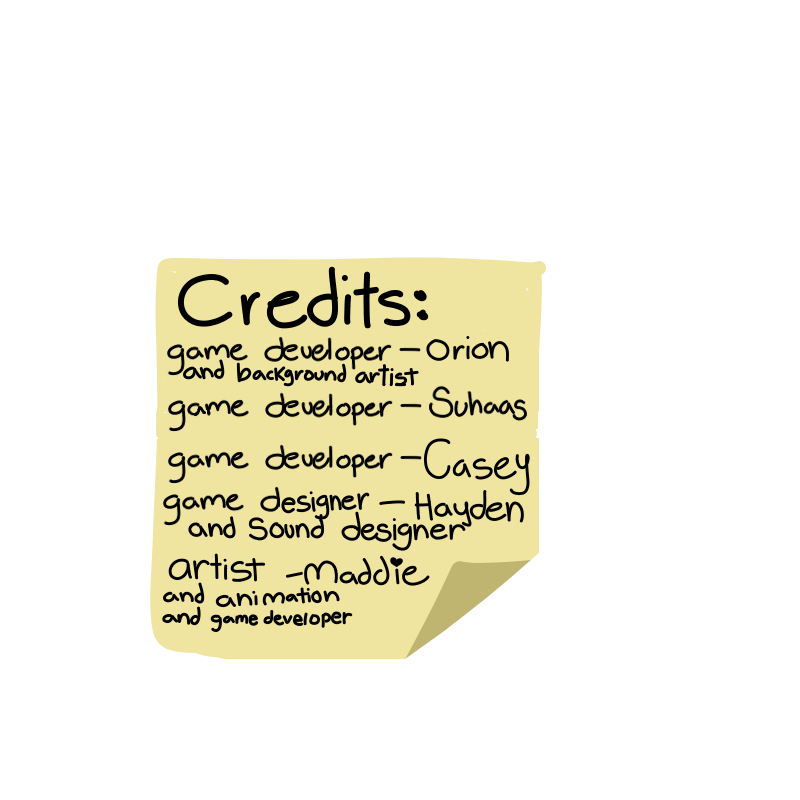 Credits:
game developer - Orion
and background artist
game developer - Suhaas
game developer - Casey
game designer - Hayden
and Sound designer
artist - Maddie
and animation
and game developer